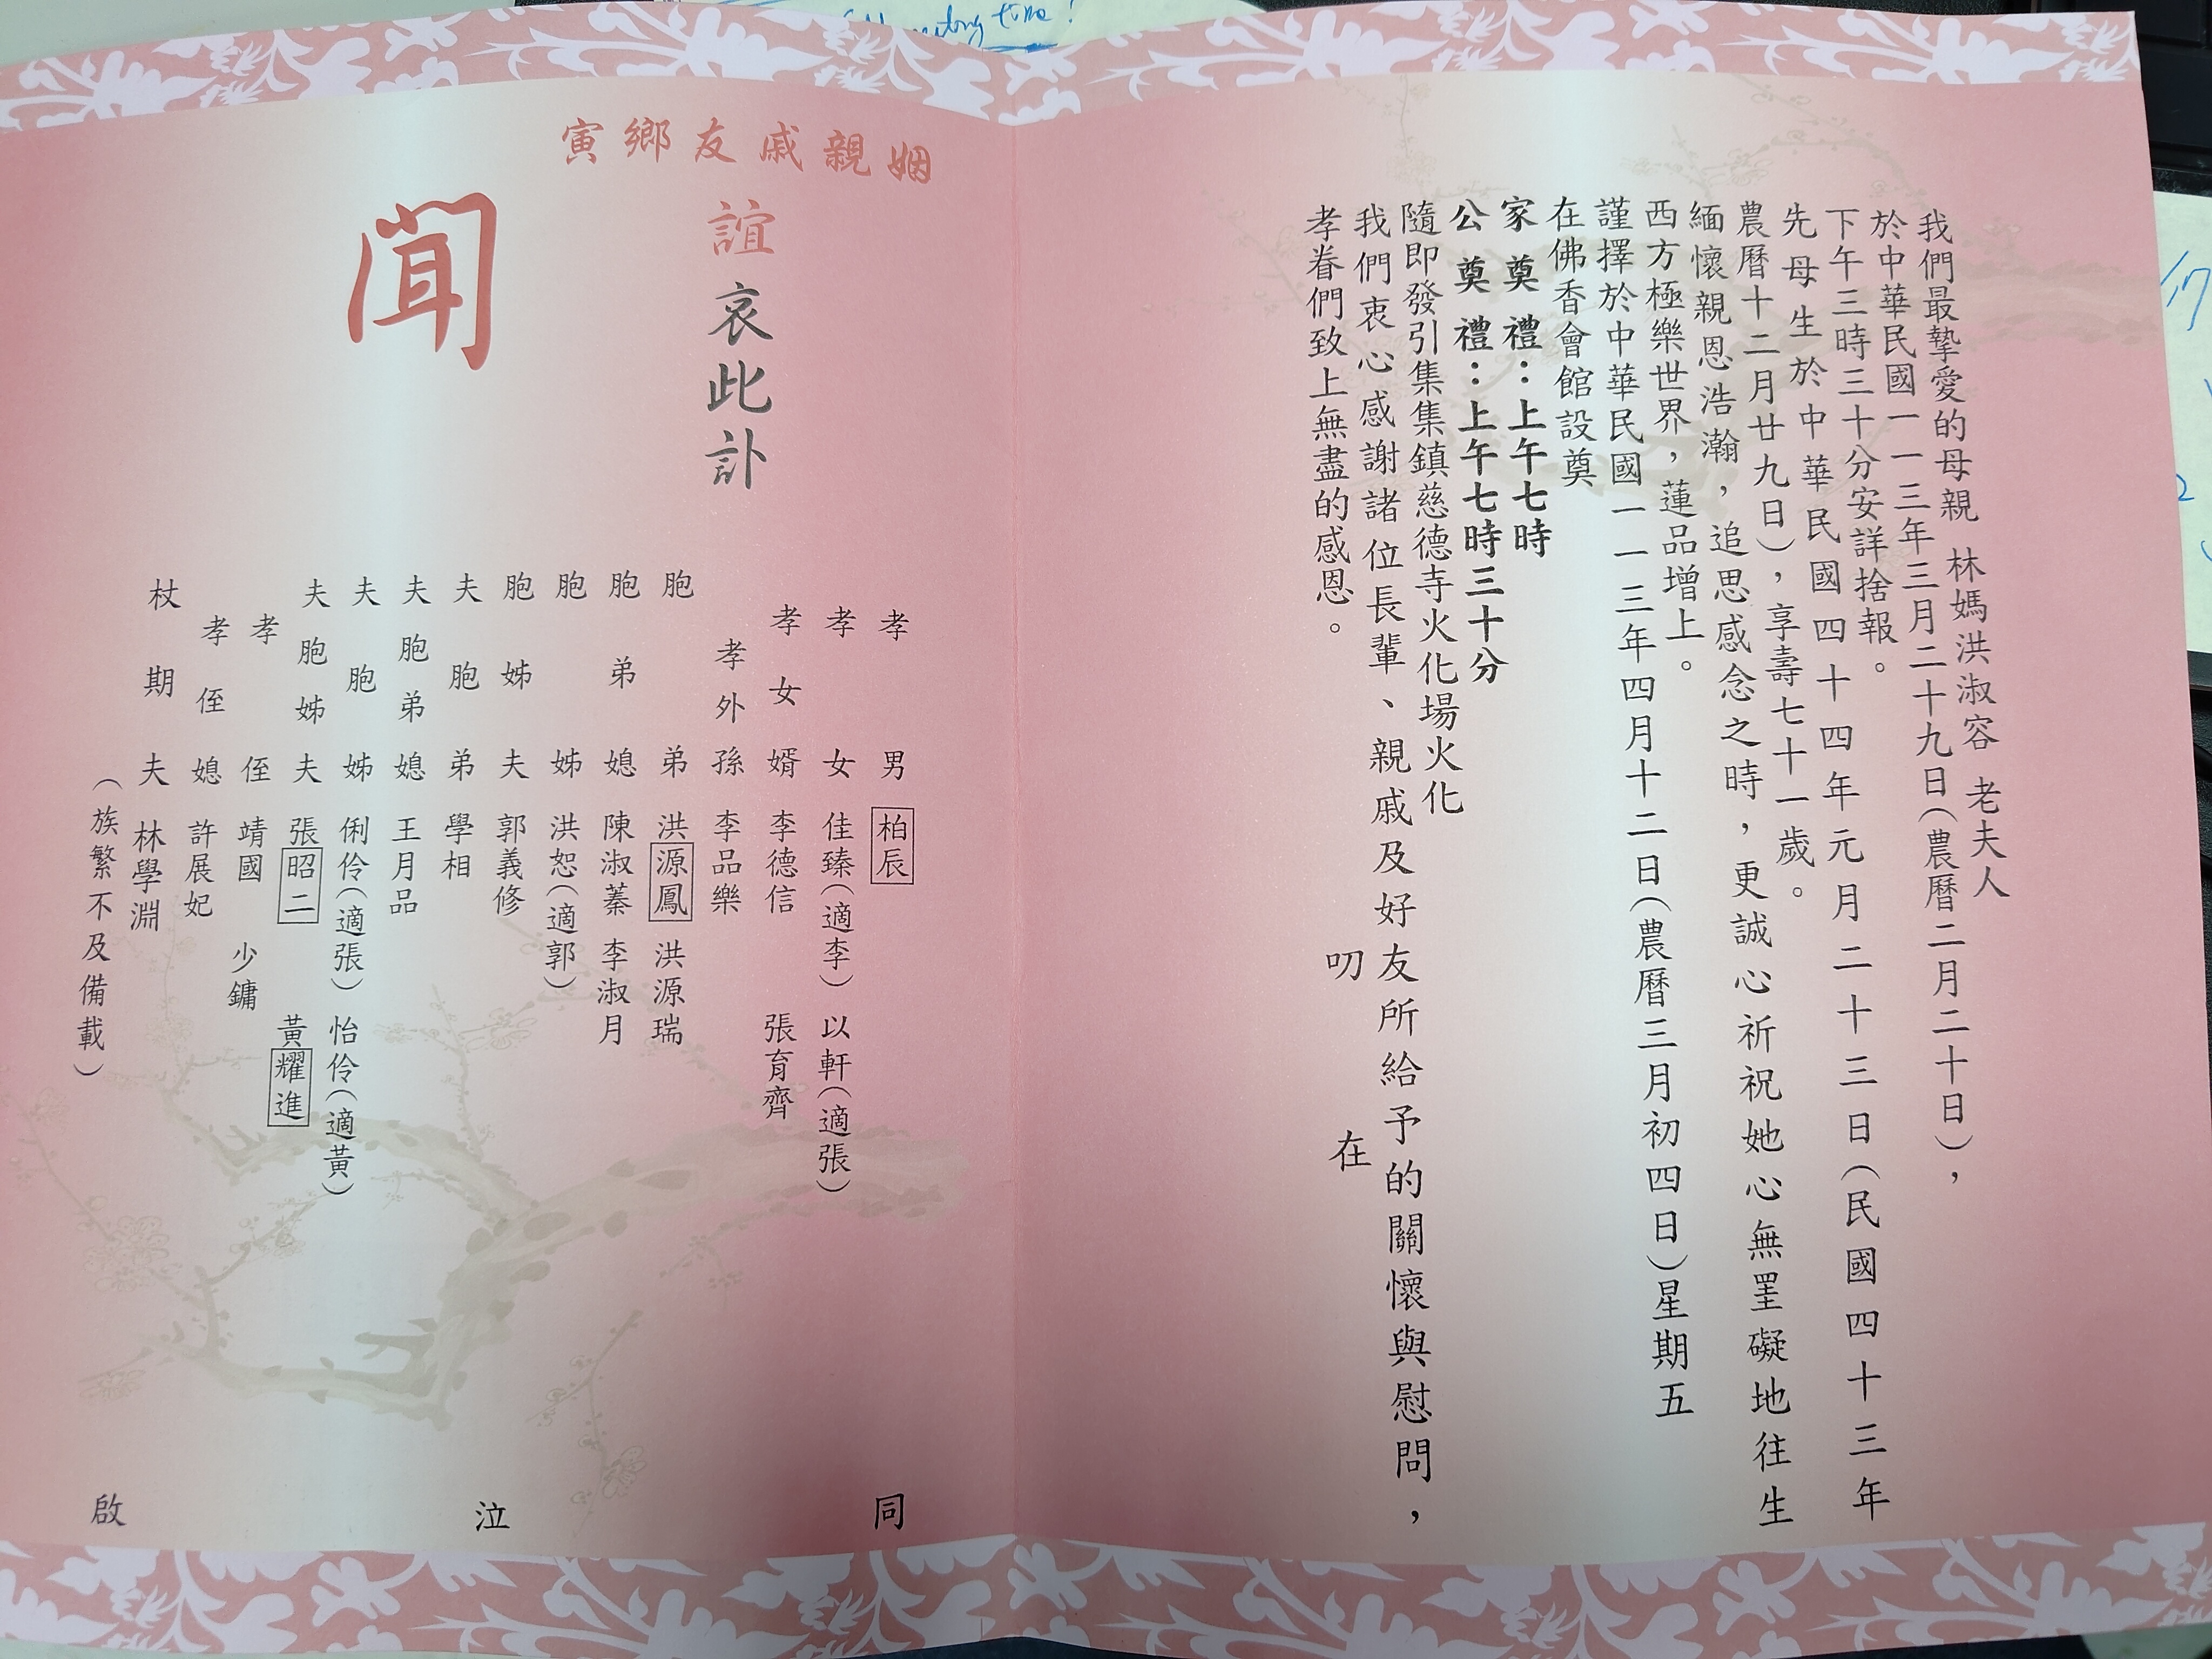 我們最摯愛的母親 林媽洪淑容 老夫人
於中華民國一一三年三月二十九日(農曆二月二十日)，
下午三時三十分安詳捨報。
先母生於中華民國四十四年元月二十三日(民國四十三年
農曆十二月廿九日)，享壽七十一歲。
緬懷親恩浩瀚，追思感念之時，更誠心祈祝她心無罣礙地往生
西方極樂世界，蓮品增上。
謹擇於中華民國一一三年四月十二日(農曆三月初四日)星期五
在佛香會館設奠
家奠禮：上午七時
公奠禮：上午七時三十分
隨即發引集集鎮慈德寺火化場火化
我們衷心感謝諸位長輩、親戚及好友所給予的關懷與慰問，
孝眷們致上無盡的感恩。 叨 在
姻親戚友鄉寅
誼哀此訃
聞
孝男 柏辰
孝女 佳臻(適李) 以軒(適張)
孝女婿 李德信 張育齊
孝外孫 李品樂
胞弟 洪源鳳 洪源瑞
胞弟媳 陳淑蓁 李淑月
胞姊 洪恕(適郭)
胞姊夫 郭義修
夫胞弟 學相
夫胞弟媳 王月品
夫胞姊 俐伶(適張) 怡伶(適黃)
夫胞姊夫 張昭二 黃耀進
孝侄 靖國 少鏞
孝侄媳 許展妃
杖期夫 林學淵
(族繁不及備載)
同 泣 啟